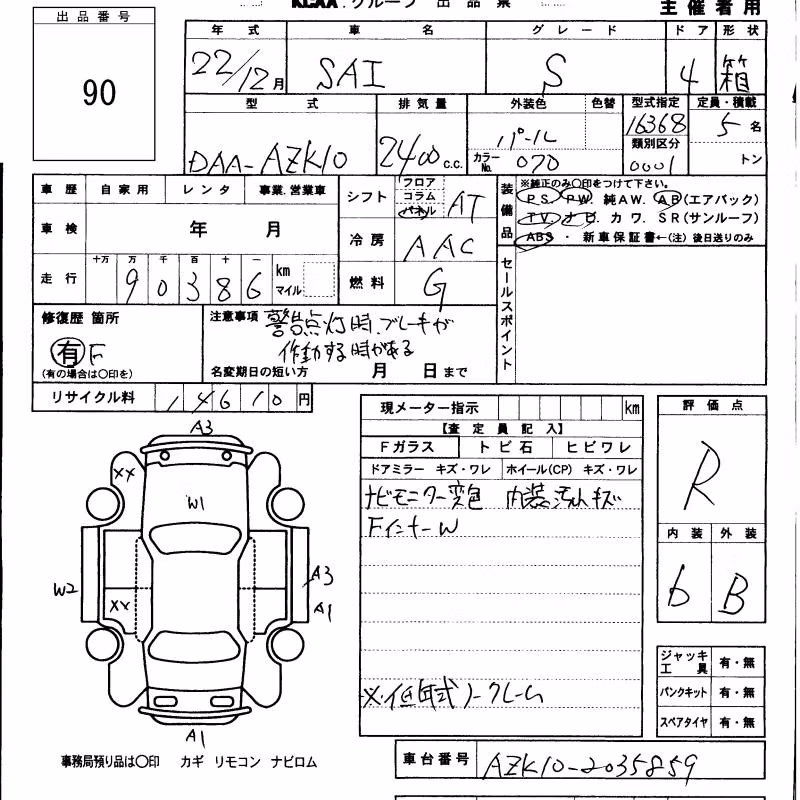 KCAA.グループ 出品票
主催者用
出品番号
90
年式 車名 グレード ドア 形状
22/12月 SAI S 4 箱
型式 排気量 外装色 色替 型式指定 定員・積載
DAA-AZK10 2400 c.c. パール 16368 5名
カラーNo. 070 類別区分 0001 トン
車歴 自家用 レンタ 事業.営業車
車検 年 月
走行 十万 万 千 百 十 一
90386 km マイル
シフト フロア コラム パネル AT
冷房 AAC
燃料 G
装備品
※純正のみ○印をつけて下さい。
PS. PW. 純AW. AB(エアバック)
TV. ナビ. カワ. SR(サンルーフ)
ABS ・ 新車保証書←(注) 後日送りのみ
セールスポイント
修復歴 箇所
有 F
(有の場合は○印を)
注意事項 警告点灯時.ブレーキが
作動する時がある
名変期日の短い方 月 日まで
リサイクル料 14610円
現メーター指示 km
【査定員記入】
Fガラス トビ石 ヒビワレ
ドアミラー キズ・ワレ ホイール(CP) キズ・ワレ
ナビモニター変色 内装汚れキズ
FインナーW
※低年式ノークレーム
評価点
R
内装 外装
6 B
ジャッキ工具 有・無
パンクキット 有・無
スペアタイヤ 有・無
A3
XX
W1
W2
XX
A3
A1
A1
事務局預り品は○印 カギ リモコン ナビロム
車台番号 AZK10-2035859